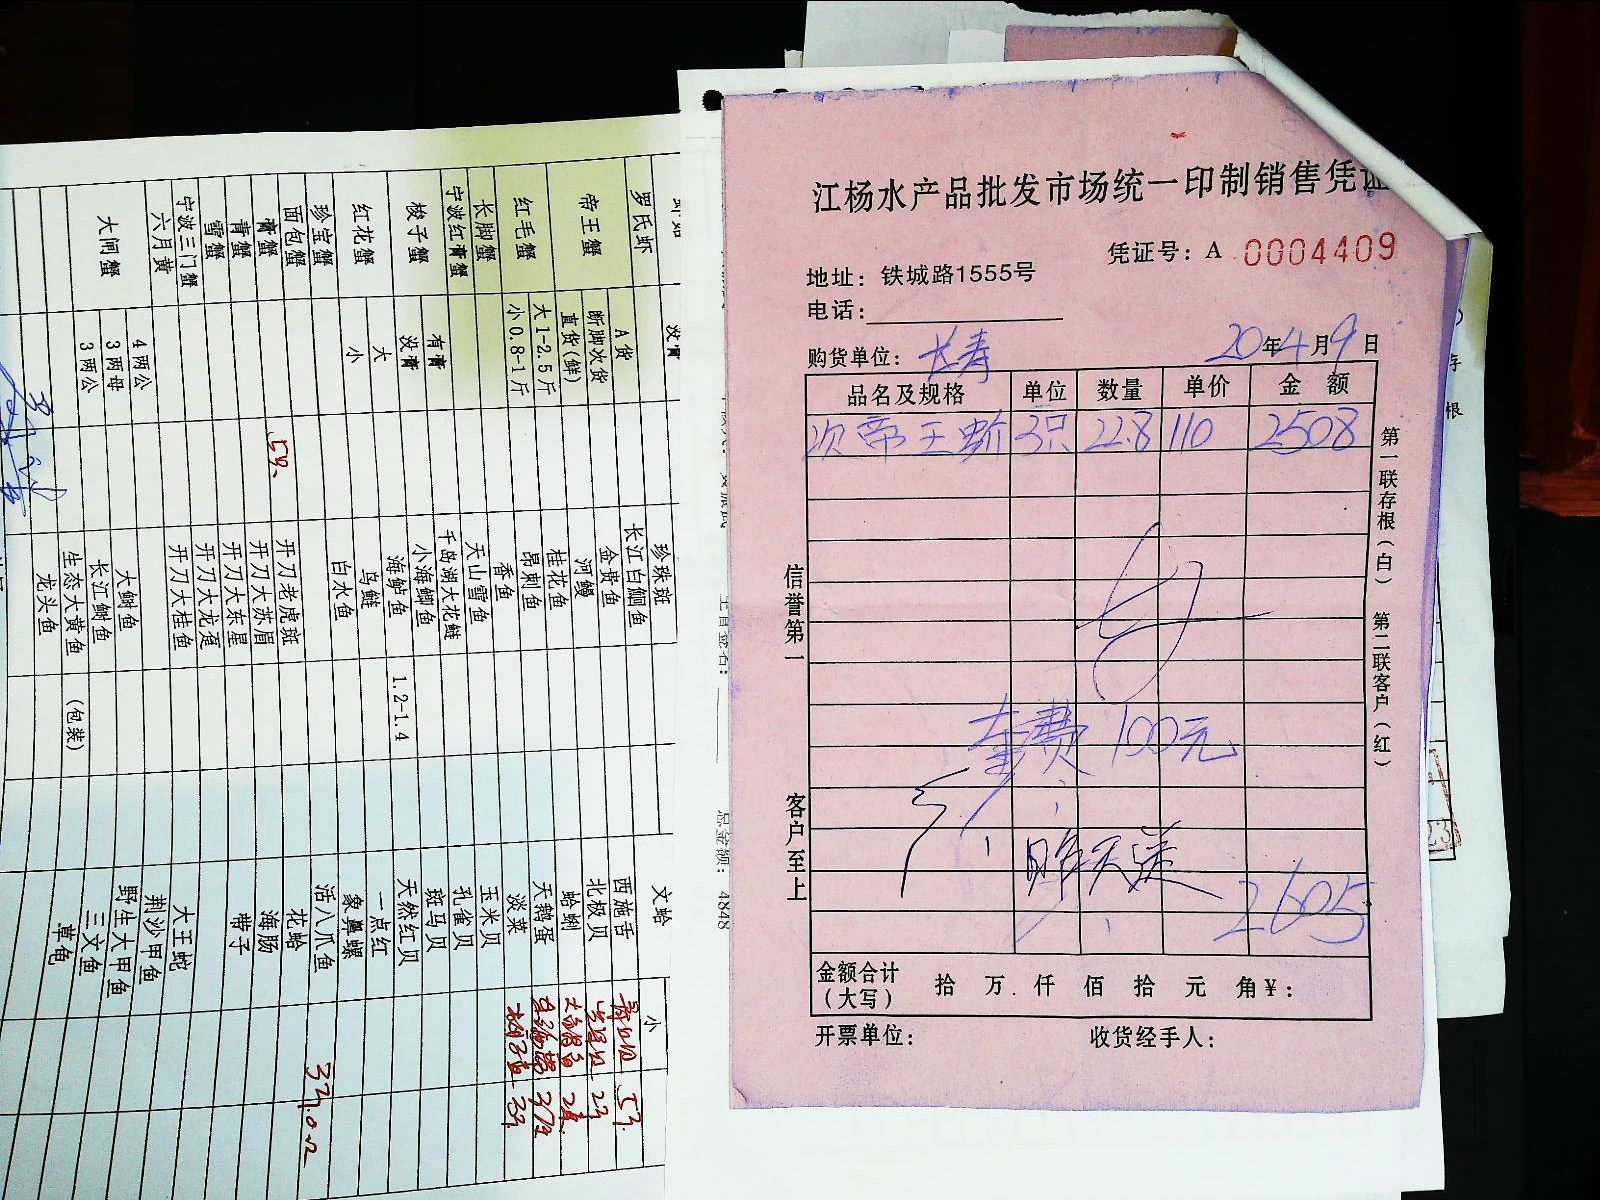 江杨水产品批发市场统一印制销售凭证
凭证号：A 0004409
地址：铁城路1555号
电话：
购货单位：长寿
20年4月9日
品名及规格 单位 数量 单价 金 额
次帝王蟹 3只 22.8 110 2508
车费 100元
昨天送
2605
金额合计（大写） 拾 万 仟 佰 拾 元 角 ¥：
开票单位： 收货经手人：
信誉第一 客户至上
第一联存根（白） 第二联客户（红）
存根
总金额：4848
没膏 珍珠斑 文蛤 小
罗氏虾 长江白鮰鱼 西施舌
帝王蟹 A货 金贵鱼 北极贝
断脚次货 河鳗 蛤蜊
直货(鲜) 桂花鱼 天鹅蛋
红毛蟹 大1-2.5斤 昂刺鱼 淡菜
小0.8-1斤 香鱼 玉米贝
长脚蟹 天山雪鱼 孔雀贝
宁波红膏蟹 千岛湖大花鲢 斑马贝
梭子蟹 有膏 小海鲫鱼 天然红贝
没膏 海鲈鱼 1.2-1.4 一点红
红花蟹 大 乌鲢 象鼻螺
小 白水鱼 活八爪鱼
珍宝蟹 花蛤
面包蟹 开刀老虎斑 海肠
膏蟹 开刀大苏眉 带子
青蟹 开刀大东星
雪蟹 开刀大龙趸 大王蛇
宁波三门蟹 开刀大桂鱼 荆沙甲鱼
六月黄 野生大甲鱼
大闸蟹 4两公 大鲥鱼 三文鱼
3两母 长江鲥鱼 草龟
3两公 生态大黄鱼 (包装)
龙头鱼